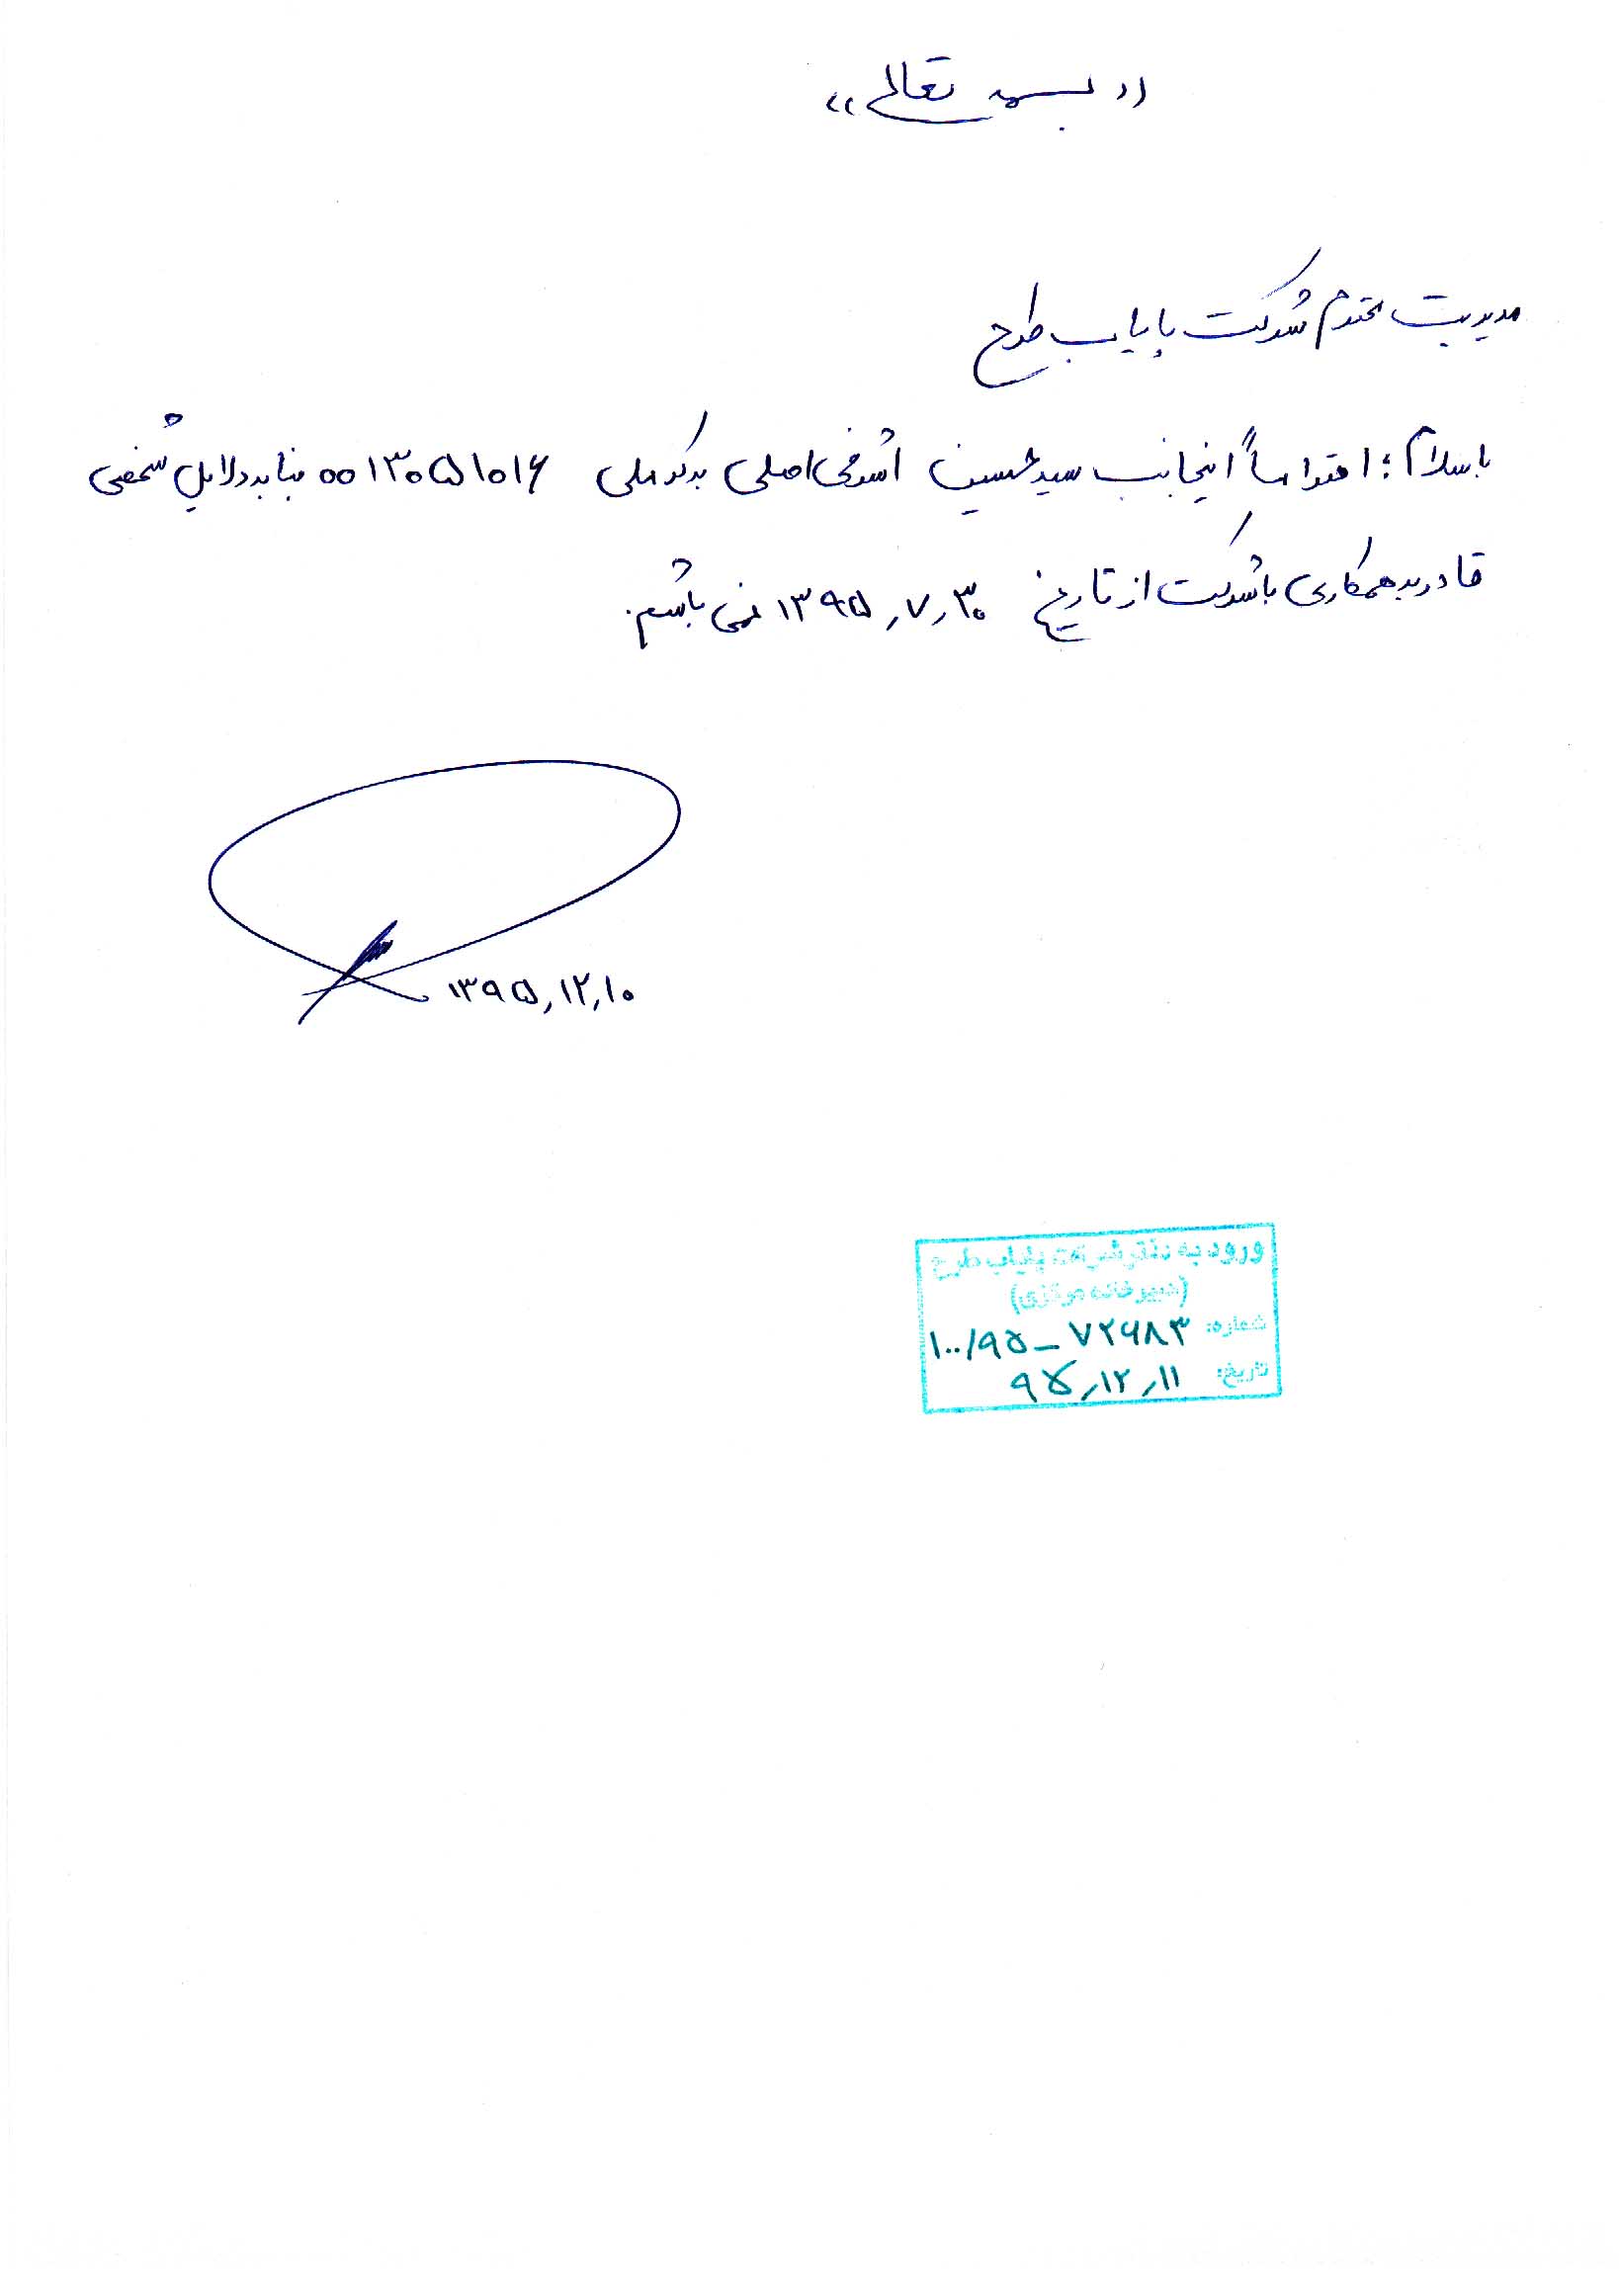 «بسمه تعالی»
مدیریت محترم شرکت پایاب طرح
باسلام؛ احتراماً اینجانب سیدحسین اشرفی اصلی به کد ملی ۰۰۱۳۰۵۱۰۱۶ بنا به دلایل شخصی
قادر به همکاری با شرکت از تاریخ ۱۳۹۵٫۷٫۳۰ نمی باشم.
۱۳۹۵٫۱۲٫۱۰
ورود به دفتر شرکت پایاب طرح
(دبیرخانه مرکزی)
شماره: ۱۰۰/۹۵-۷۲۶۸۳
تاریخ: ۹۵٫۱۲٫۱۱